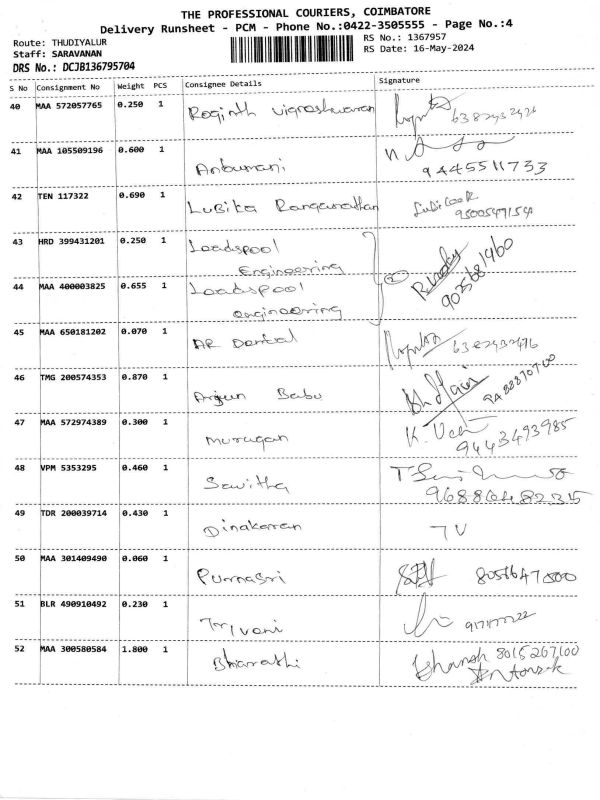 THE PROFESSIONAL COURIERS, COIMBATORE
Delivery Runsheet - PCM - Phone No.:0422-3505555 - Page No.:4
Route: THUDIYALUR
RS No.: 1367957
Staff: SARAVANAN
RS Date: 16-May-2024
DRS No.: DCJB136795704
S No Consignment No Weight PCS Consignee Details Signature
40 MAA 572057765 0.250 1 Vignoshwaran
41 MAA 105509196 0.600 1 Anbumani 9445511733
42 TEN 117322 0.690 1 Lubika Ranganathan
43 HRD 399431201 0.250 1 Loadspool
Engineering
44 MAA 400003825 0.655 1 Loadspool
engineering
45 MAA 650181202 0.070 1 AR Dental
46 TMG 200574353 0.870 1 Arjun Babu
47 MAA 572974389 0.300 1 Murugan 9443493985
48 VPM 5353295 0.460 1 Savitha
49 TDR 200039714 0.430 1 Dinakaran
50 MAA 301409490 0.060 1 Purnasri
51 BLR 490910492 0.230 1
52 MAA 300580584 1.800 1 Bharathi 8015267100